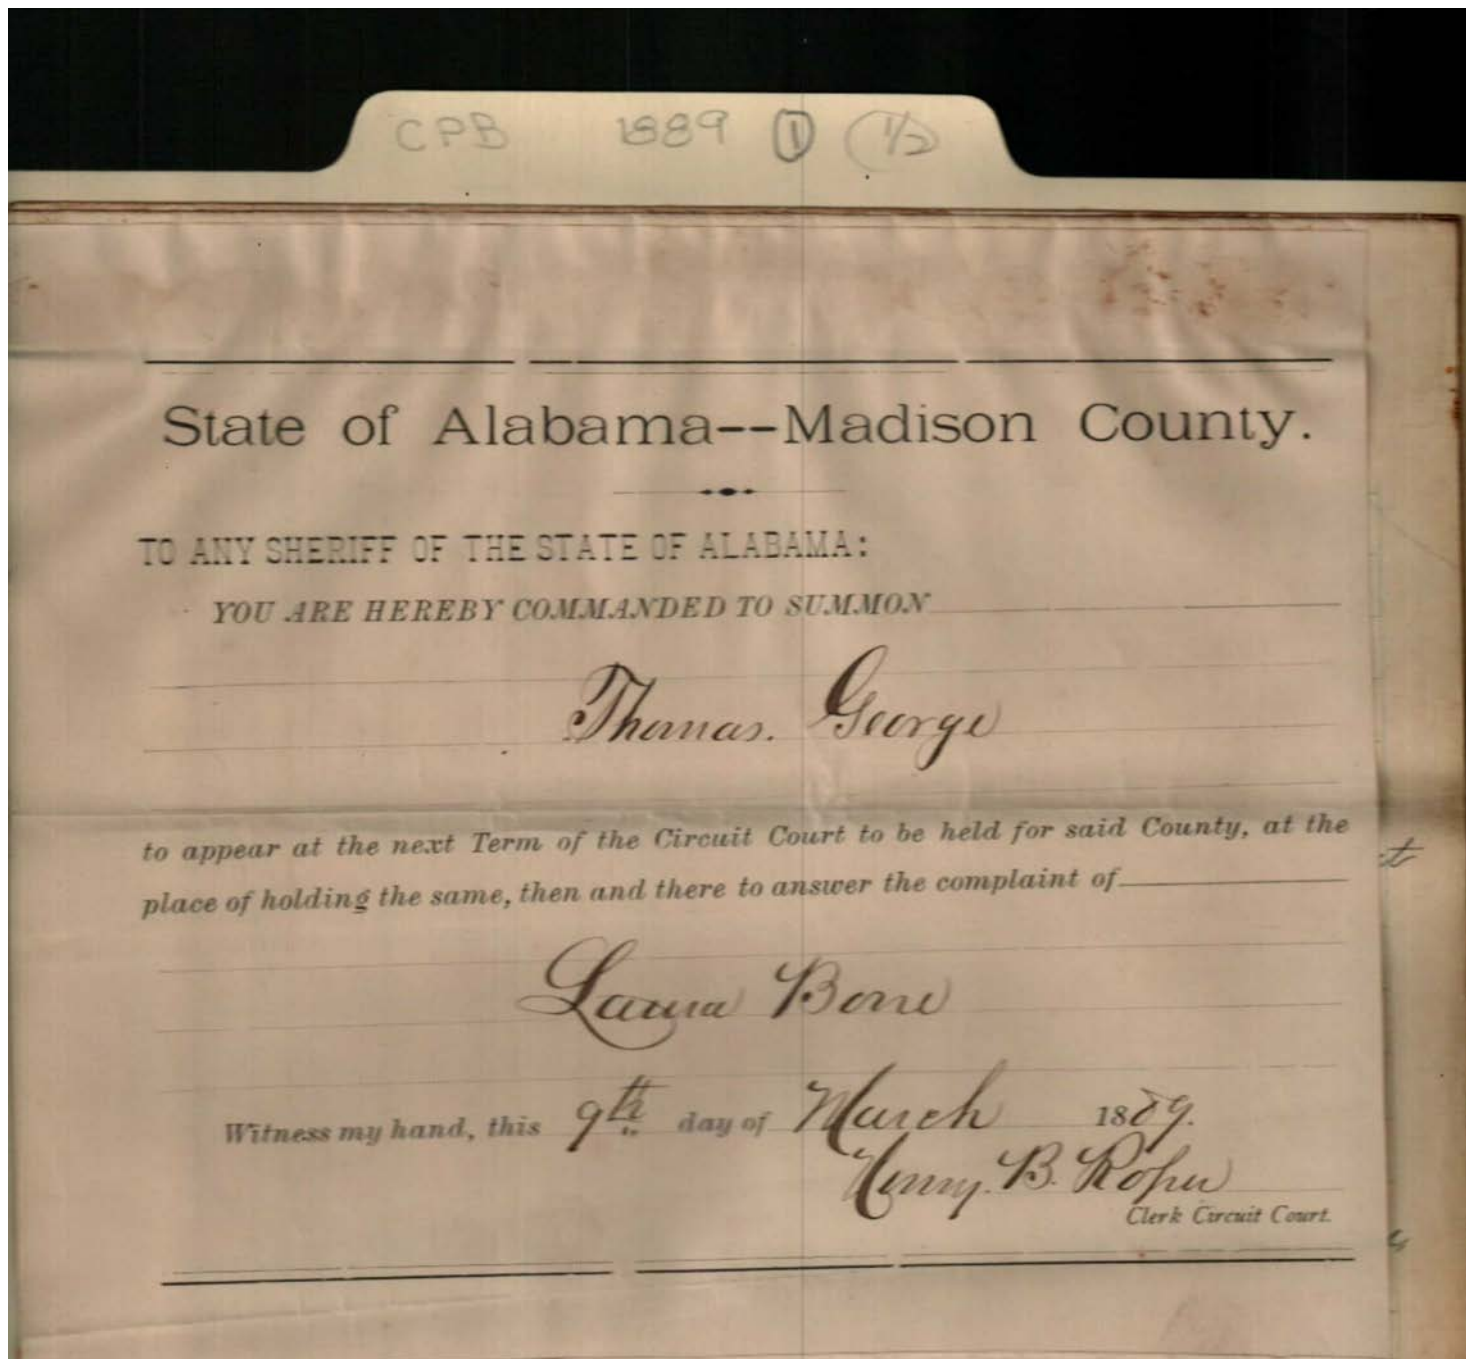 CPB 1889 1 (1/2)
State of Alabama--Madison County.
TO ANY SHERIFF OF THE STATE OF ALABAMA:
YOU ARE HEREBY COMMANDED TO SUMMON
Thomas. George
to appear at the next Term of the Circuit Court to be held for said County, at the
place of holding the same, then and there to answer the complaint of
Laura Bone
Witness my hand, this 9th day of March 1889.
Henry. B. Roper
Clerk Circuit Court.